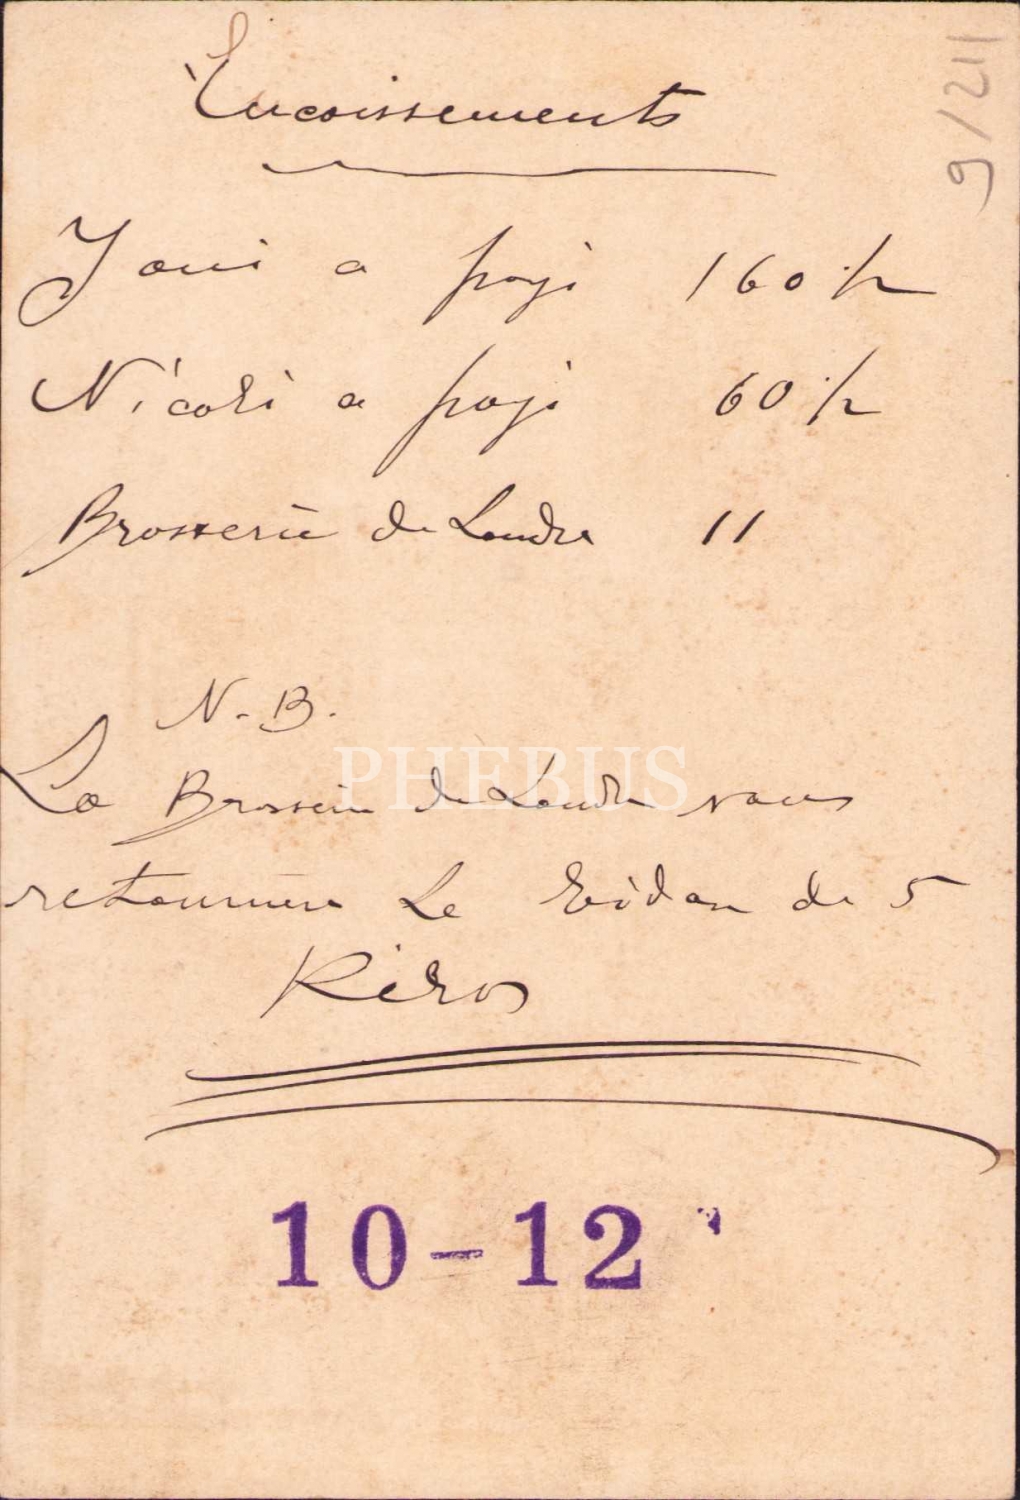 Encaissements
Yani a payé 160 p
Nicoli a payé 60 p
Brasserie de Londre 11
N.B.
La Brasserie de Londre vous
retournera Le Bidon de 5
Kilos
10-12
9/211
PHEBUS